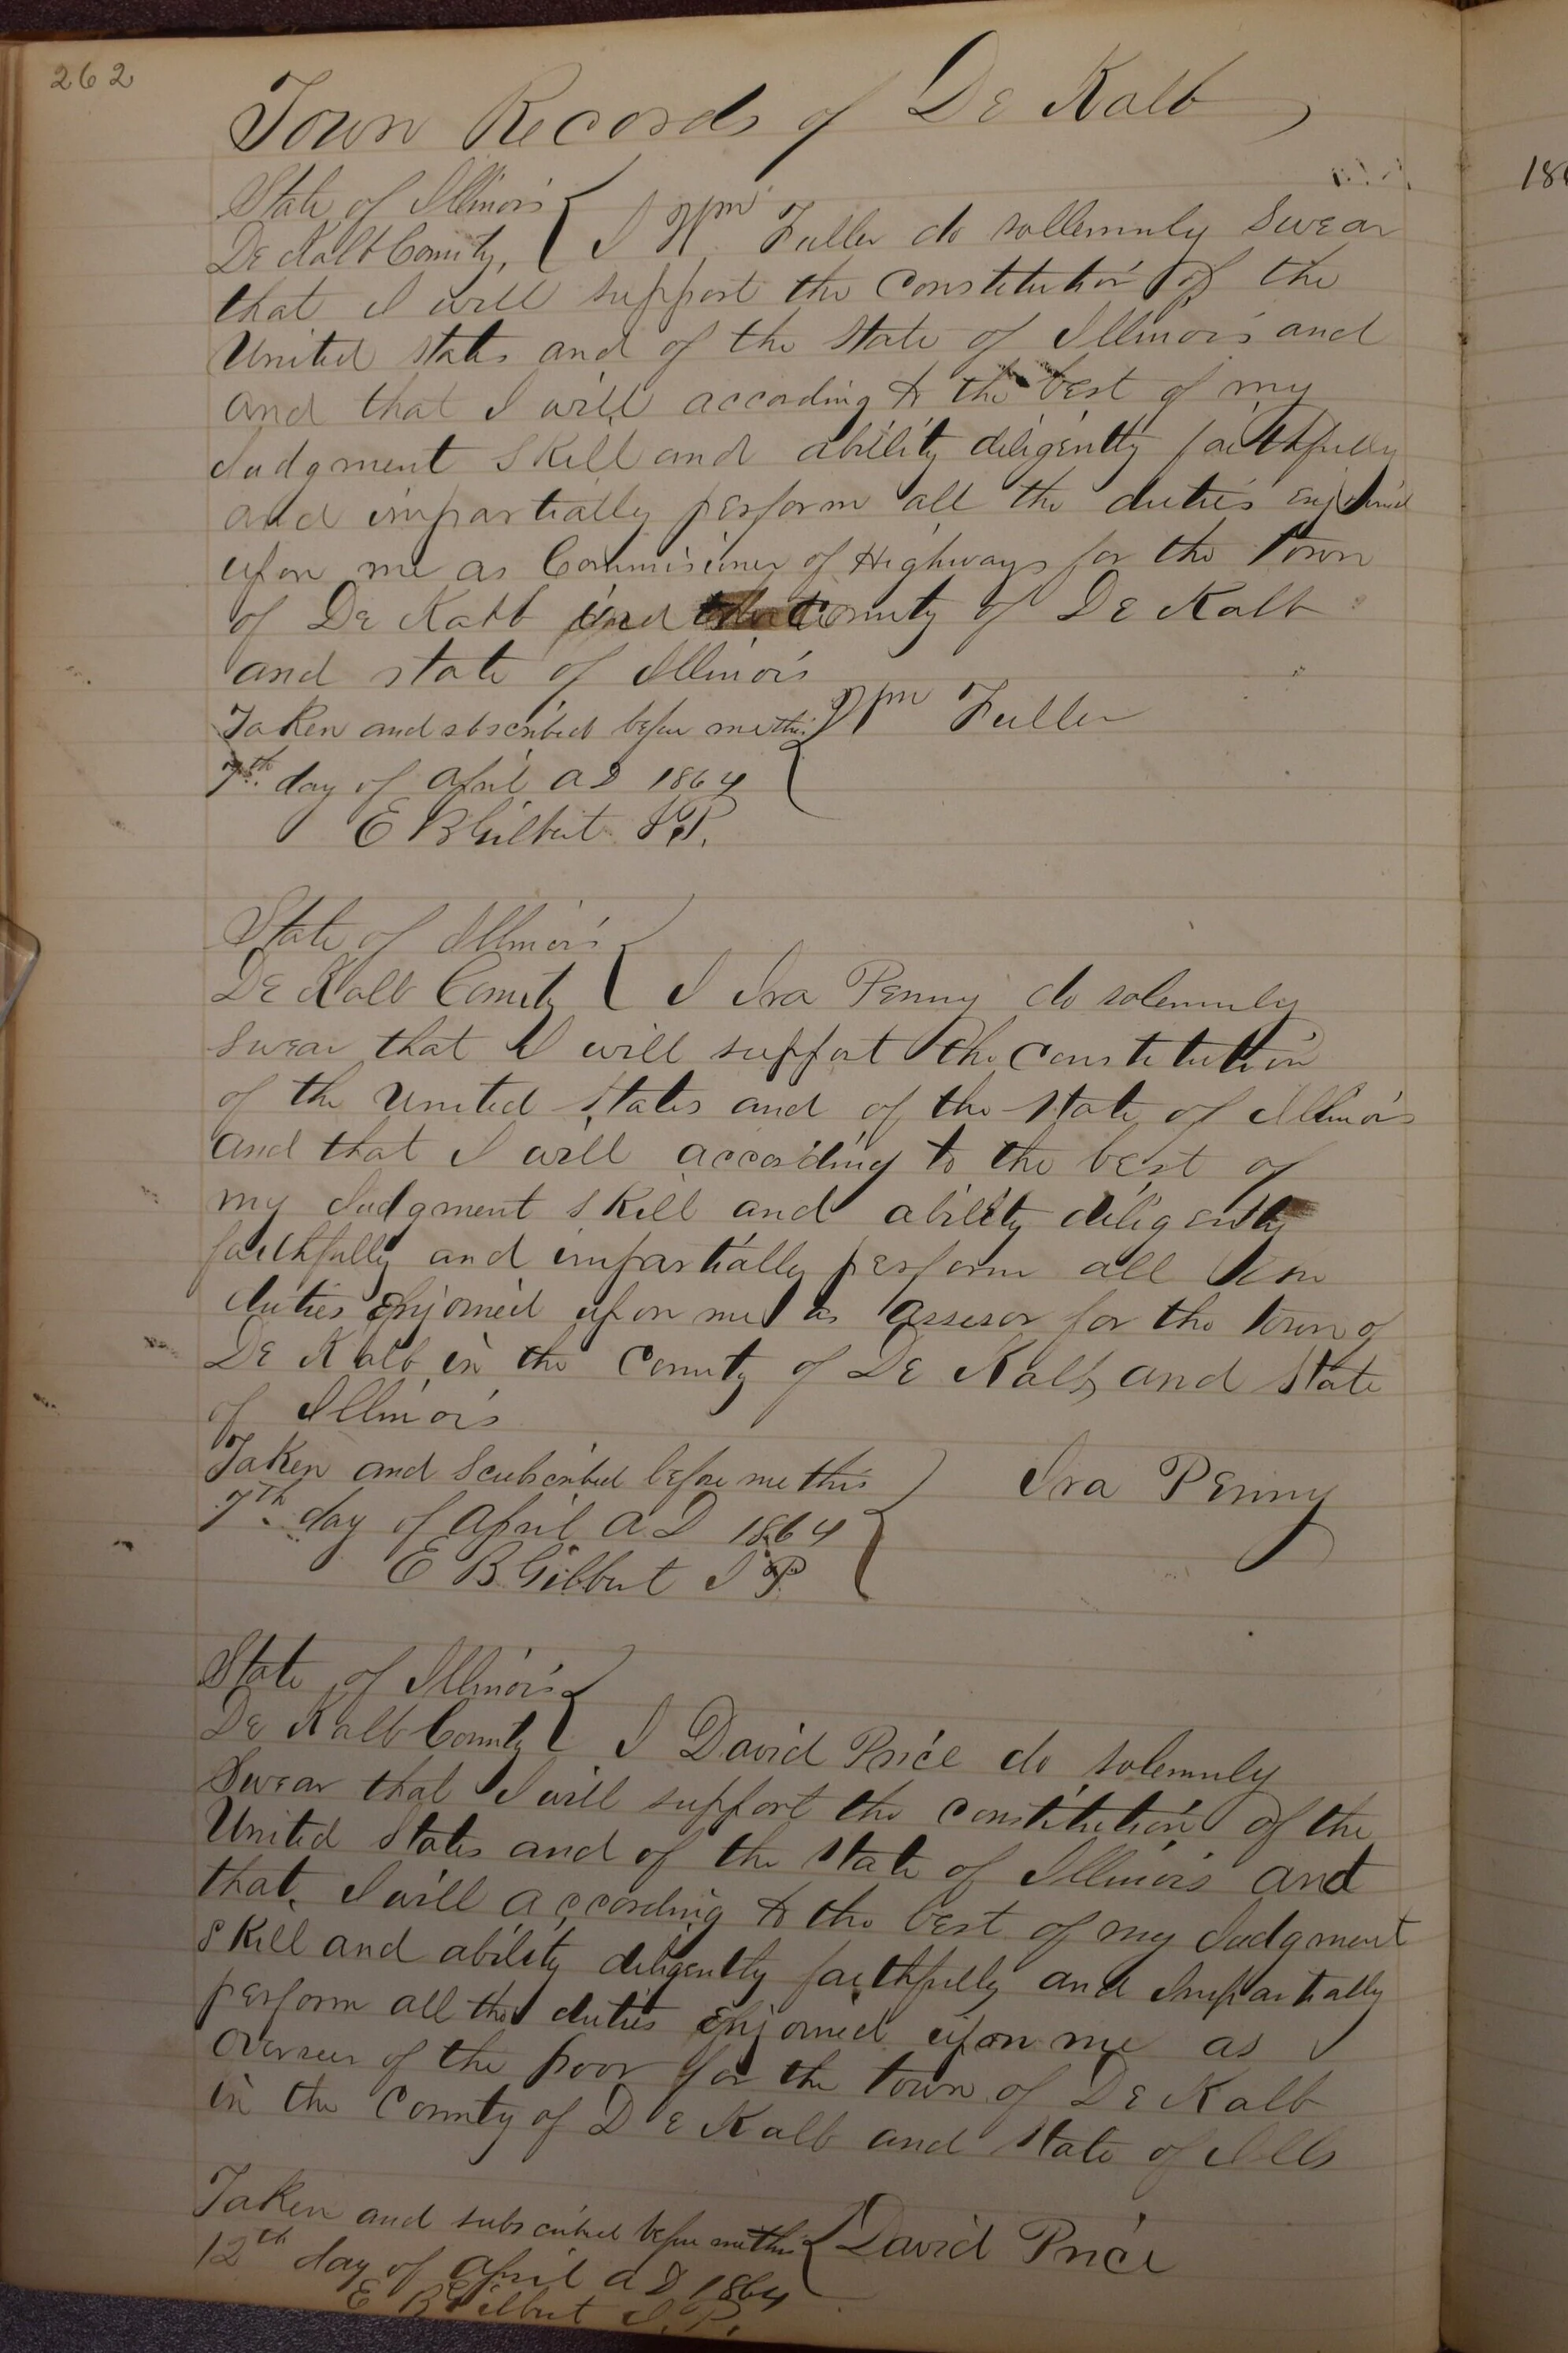 262
Town Records of De Kalb
State of Illinois
De Kalb County, I Wm Fuller do sollemnly Swear
that I will support the Constitution of the
United states and of the State of Illinois and
and that I will accoading to the best of my
Judgment Skill and ability diligently faithfully
and impartially perform all the duties enjoined
upon me as Commisioner of Highways for the Town
of De Kalb County of De Kalb
and state of Illinois
Taken and sbscribed before me this Wm Fuller
7th day of April AD 1864
E B Gilbert J.P.
State of Illinois
De Kalb County I Ira Penny do solemnly
Swear that I will support the Constitution
of the United States and of the State of Illinois
and that I will according to the best of
my Judgment Skill and ability diligently
faithfully and impartially perform all
duties Enjoined upon me as Assesor for the Town of
De Kalb in the County of De Kalb and State
of Illinois
Taken and Scubscribed before me this Ira Penny
7th day of April A.D 1864
E B Gilbert J P
State of Illinois
De Kalb County I David Price do solemnly
Swear that I will support the Constitution of the
United States and of the State of Illinois and
that I will according to the best of my Judgment
Skill and ability diligently faithfully and Impartially
perform all the duties Enjoined upon me as
Overseer of the poor for the Town of De Kalb
in the County of De Kalb and State of Ills
Taken and subscribed before me this David Price
12th day of April AD 1864
E B Gilbert J.P.